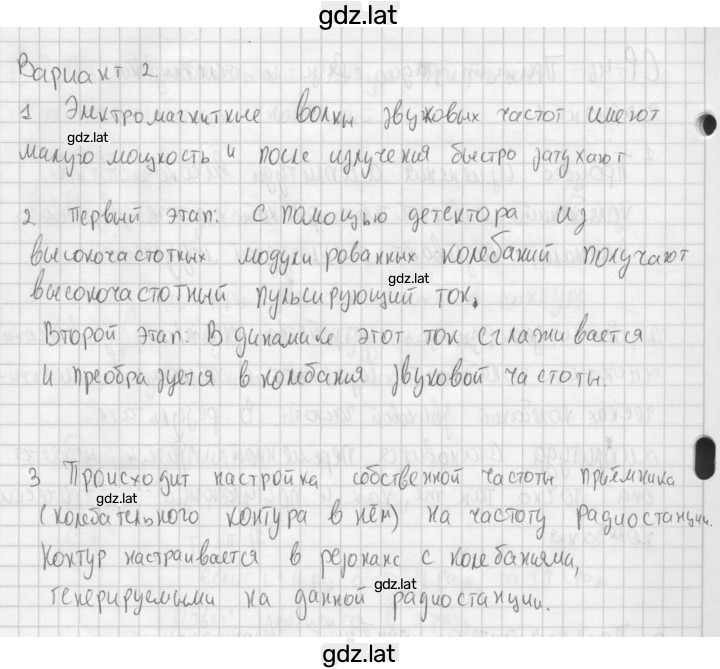 gdz.lat
Вариант 2
1 Электромагнитные волны звуковых частот имеют
gdz.lat
малую мощность и после излучения быстро затухают
2 Первый этап: С помощью детектора из
высокочастотных модулированных колебаний получают
gdz.lat
высокочастотный пульсирующий ток.
Второй этап: В динамике этот ток сглаживается
и преобразуется в колебания звуковой частоты.
3 Происходит настройка собственной частоты приёмника
gdz.lat
(колебательного контура в нём) на частоту радиостанции.
Контур настраивается в резонанс с колебаниями,
gdz.lat
генерируемыми на данной радиостанции.
gdz.lat